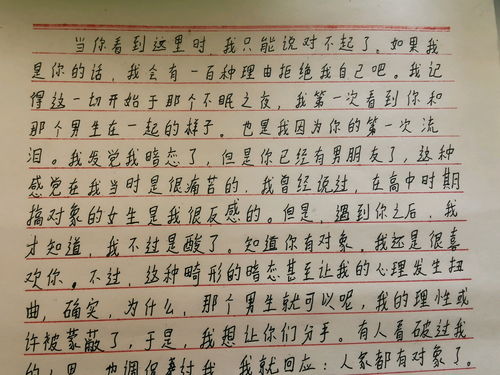 当你看到这里时，我只能说对不起了，如果我
是你的话，我会有一百种理由拒绝我自己吧。我记
得这一切开始于那个不眠之夜，我第一次看到你和
那个男生在一起的样子。也是我因为你的第一次流
泪。我发觉我暗恋了，但是你已经有男朋友了，这种
感觉在我当时是很痛苦的，我曾经说过，在高中时期
搞对象的女生是我很反感的。但是，遇到你之后，我
才知道，我不过是酸了。知道你有对象，我还是很喜
欢你。不过，这种畸形的暗恋甚至让我的心理发生扭
曲，确实，为什么，那个男生就可以呢，我的理性或
许被蒙蔽了，于是，我想让你们分手。有人看破过我
的心思，也调侃着过我，我就回应：人家都有对象了。